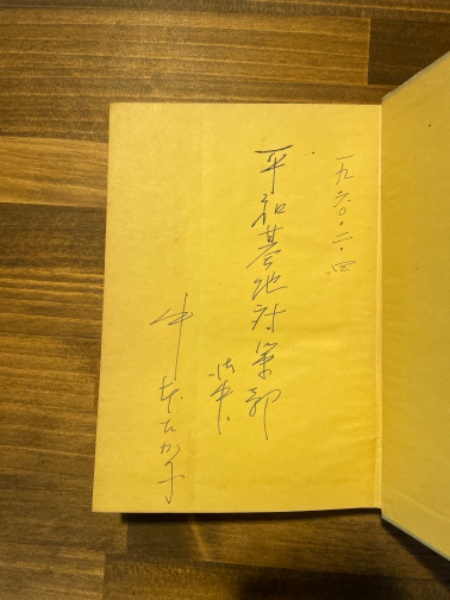 一九六〇・二・四
平和基地対策部
御中
中本たか子